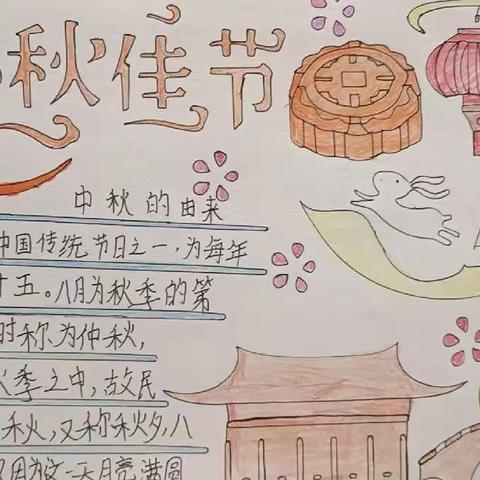 秋佳节
中秋的由来
中国传统节日之一，为每年
十五。八月为秋季的第
时称为仲秋，
秋季之中，故民
秋，又称秋夕，八
又因为这一天月亮满圆